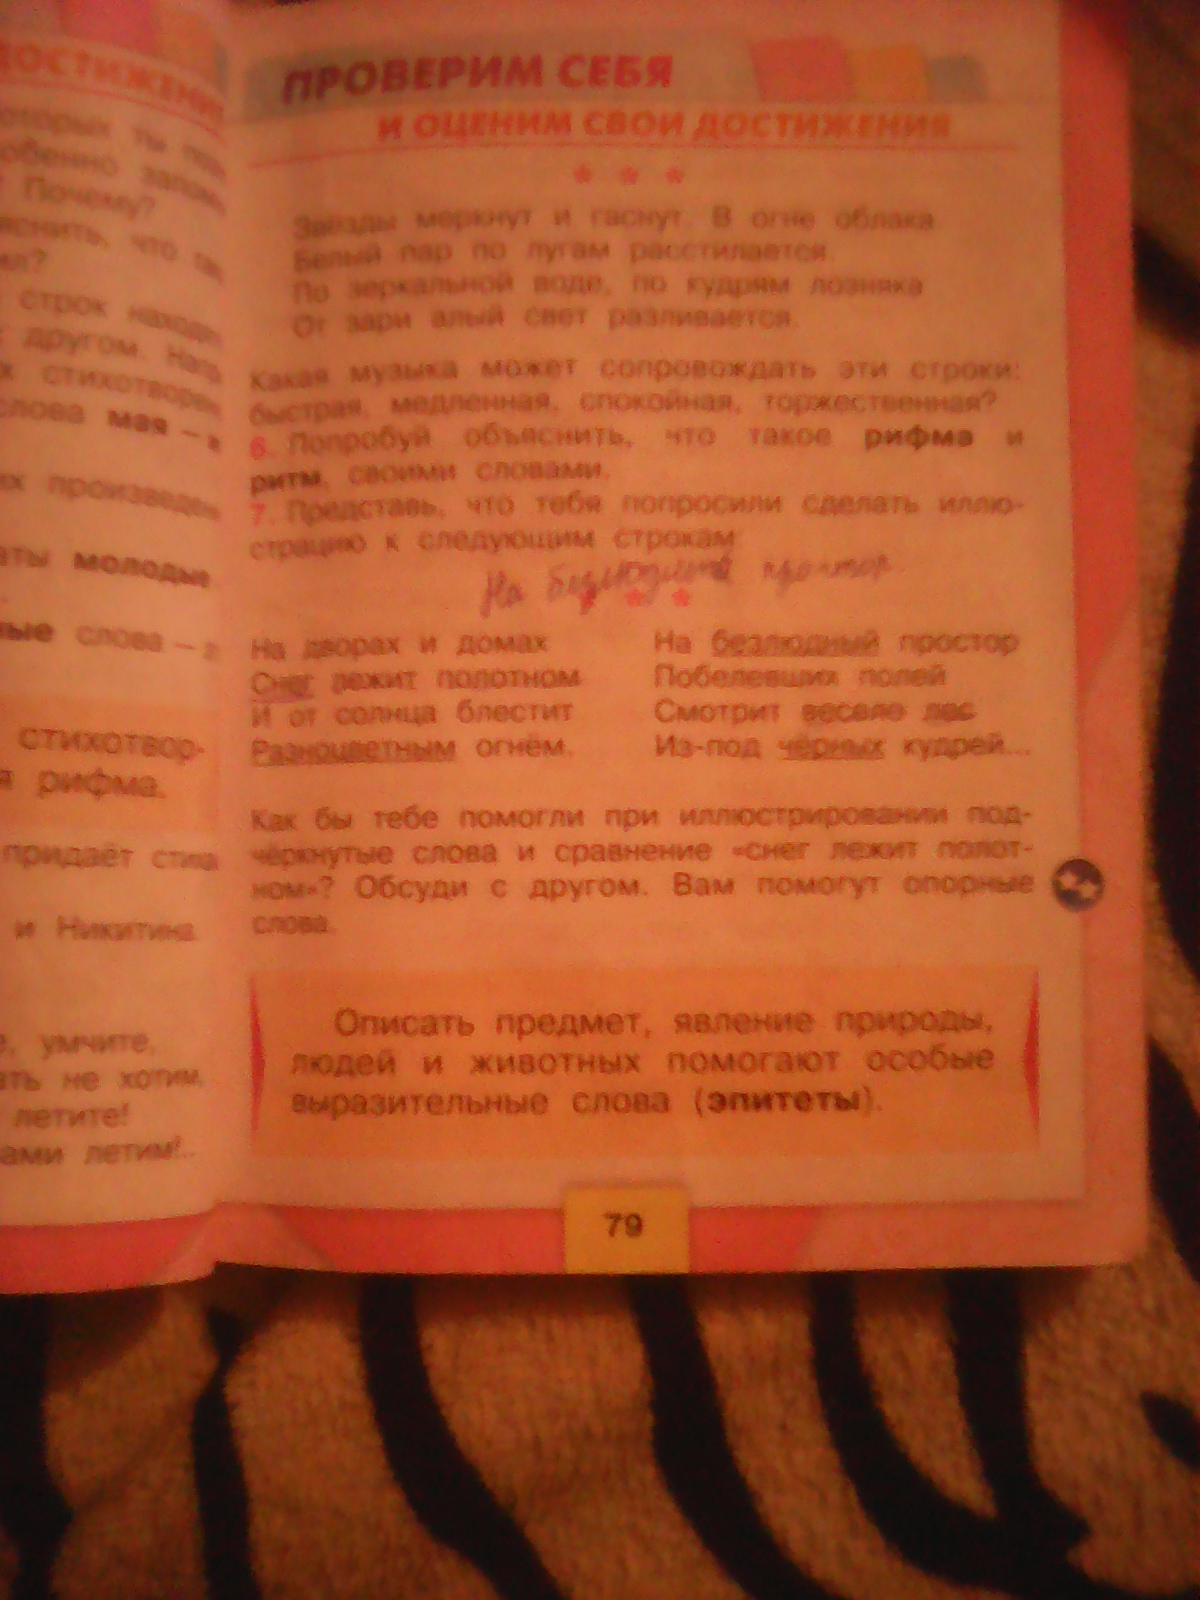 ДОСТИЖЕНИ
оторых ты
обенно запом
Почему?
яснить, что
ил?
строк наход
другом. Напр
х стихотворен
слова мая –
их произведен
аты молодые
ные слова –
стихотвор-
я рифма.
придаёт стиха
и Никитина.
е, умчите,
ать не хотим,
летите!
ами летим!..
ПРОВЕРИМ СЕБЯ
И ОЦЕНИМ СВОИ ДОСТИЖЕНИЯ
* * *
Звёзды меркнут и гаснут. В огне облака.
Белый пар по лугам расстилается.
По зеркальной воде, по кудрям лозняка
От зари алый свет разливается.
Какая музыка может сопровождать эти строки:
быстрая, медленная, спокойная, торжественная?
6. Попробуй объяснить, что такое рифма и
ритм, своими словами.
7. Представь, что тебя попросили сделать иллю-
страцию к следующим строкам:
На безлюдный простор
* * *
На дворах и домах
Снег лежит полотном
И от солнца блестит
Разноцветным огнём.
На безлюдный простор
Побелевших полей
Смотрит весело лес
Из-под чёрных кудрей...
Как бы тебе помогли при иллюстрировании под-
чёркнутые слова и сравнение «снег лежит полот-
ном»? Обсуди с другом. Вам помогут опорные
слова.
Описать предмет, явление природы,
людей и животных помогают особые
выразительные слова (эпитеты).
79